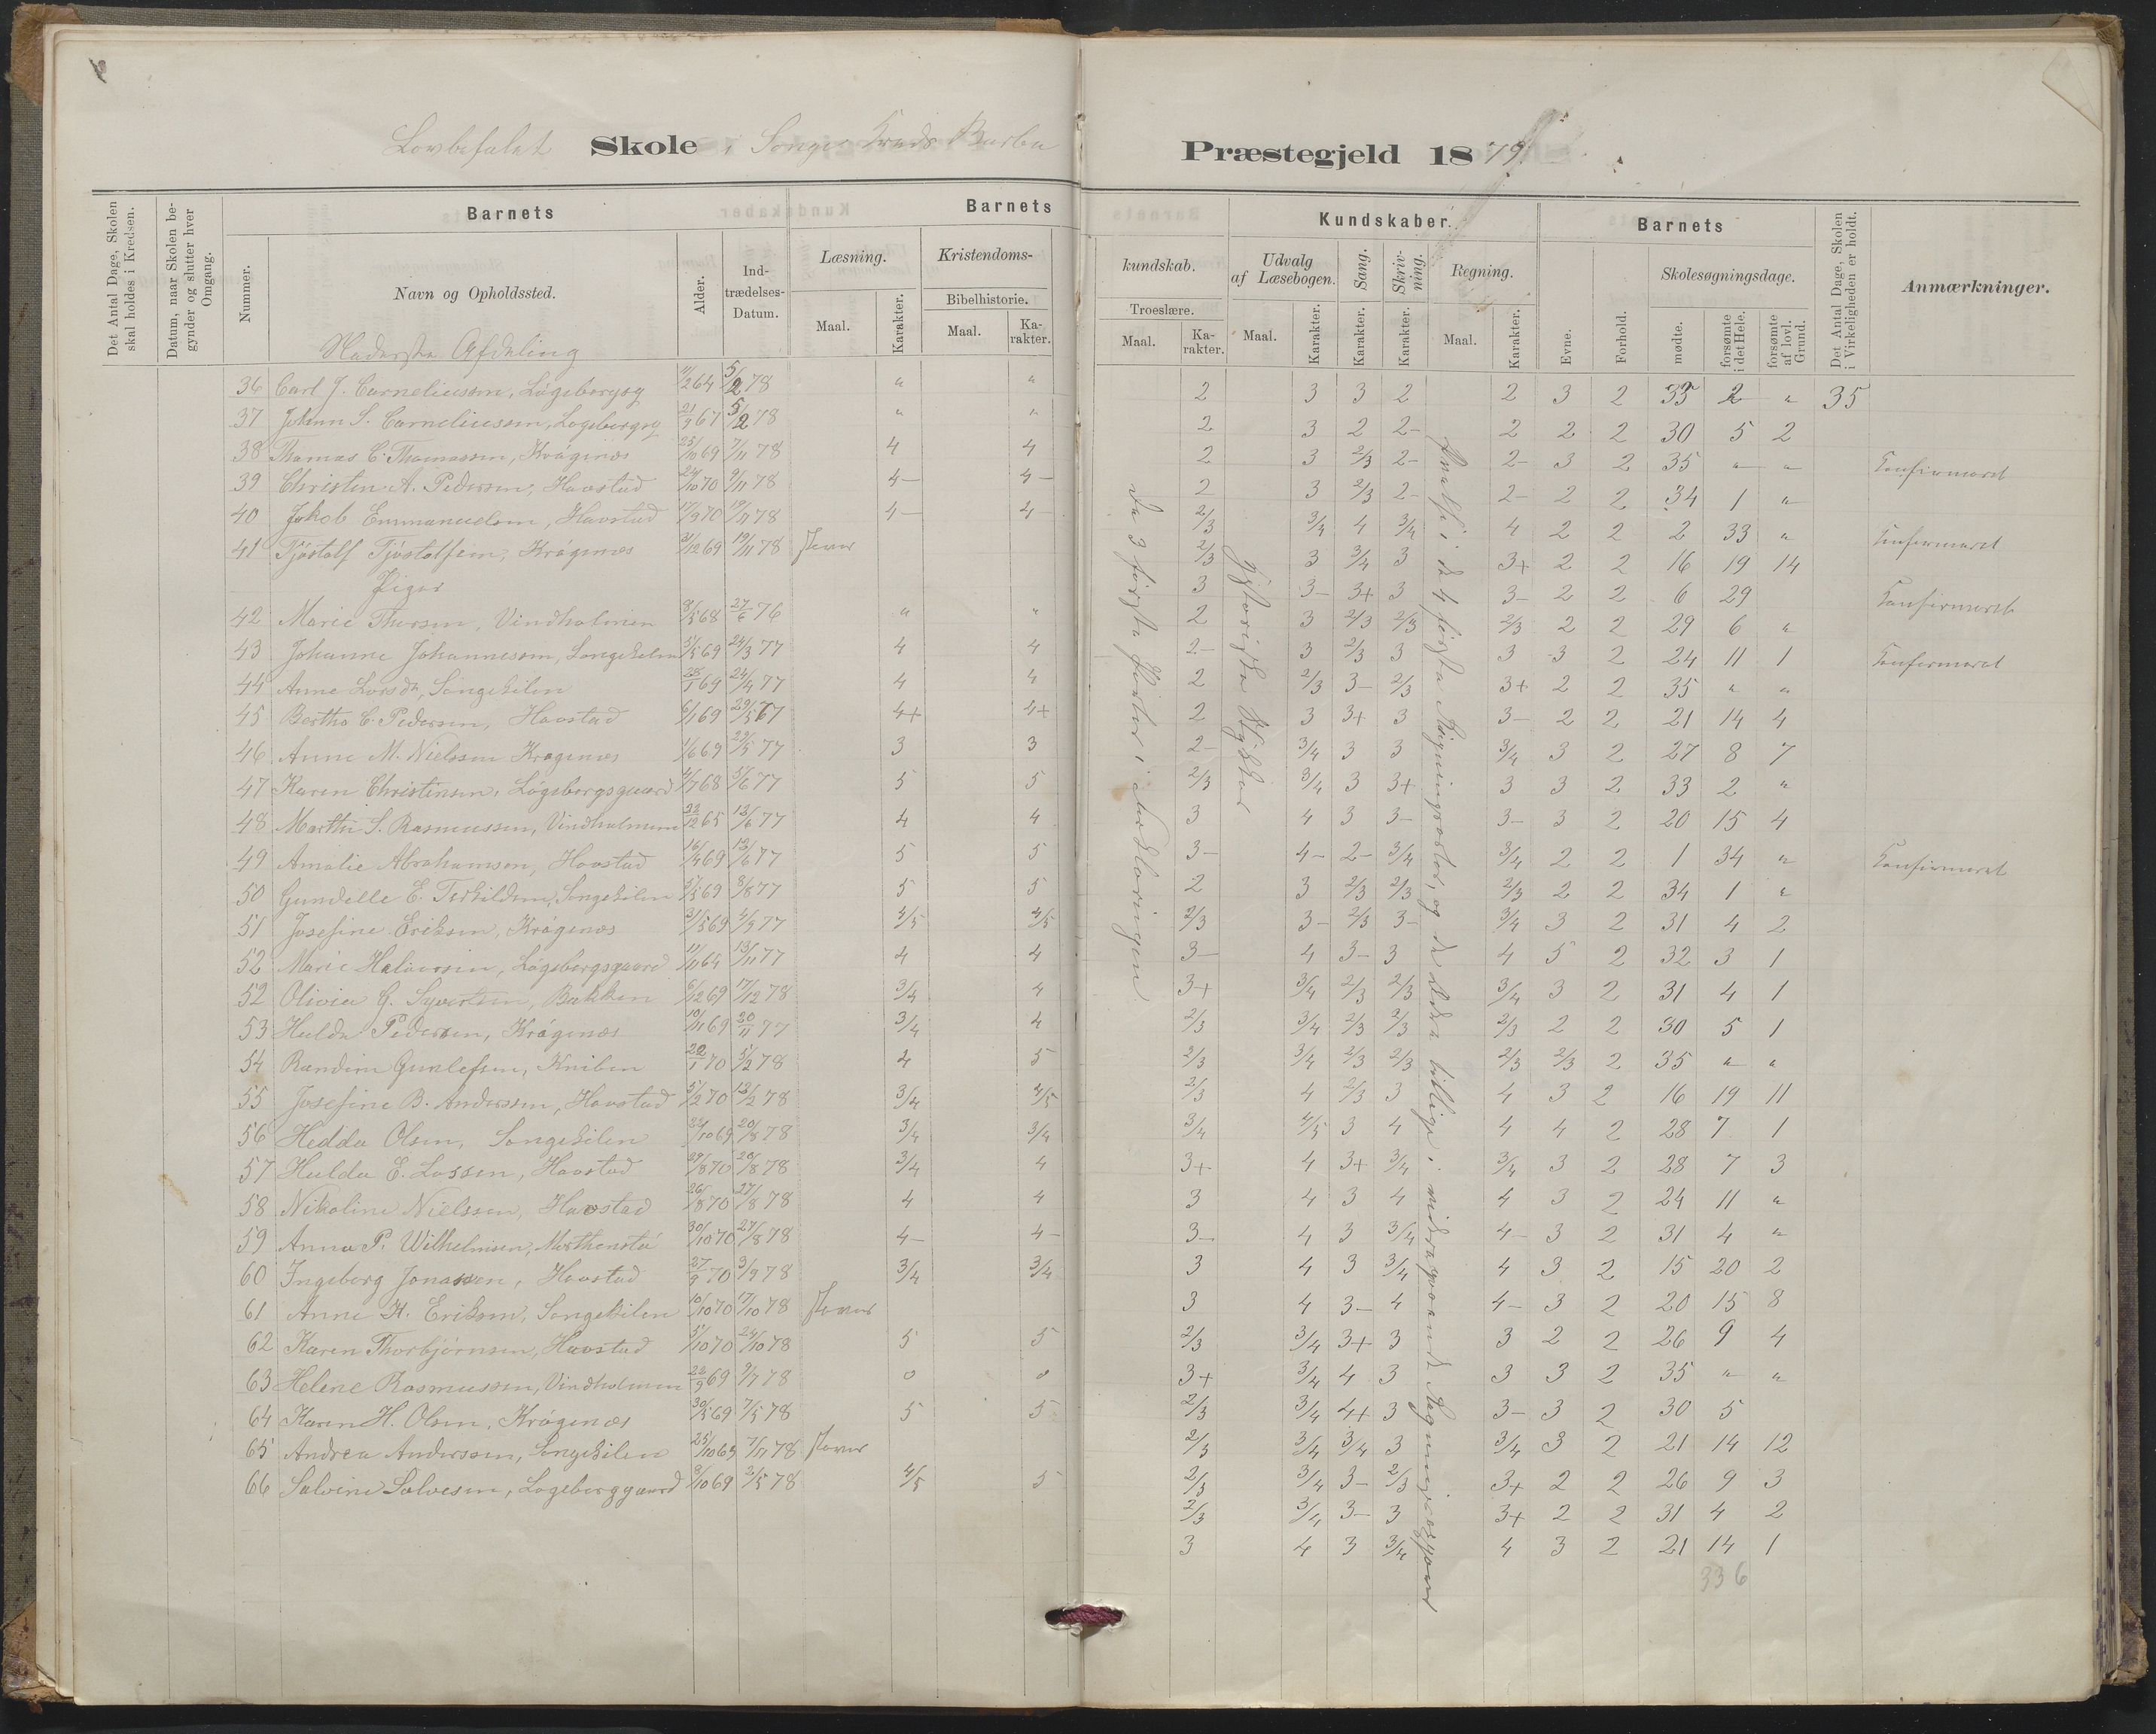 Lovbefalet Skole i Songe Kreds Barbu Præstegjeld 1879.
Det Antal Dage, Skolen skal holdes i Kredsen.
Datum, naar Skolen begynder og slutter hver Omgang.
Barnets
Nummer.
Navn og Opholdssted.
Alder.
Indtrædelses-Datum.
Barnets
Læsning.
Maal.
Karakter.
Kristendoms-
Bibelhistorie.
Maal.
Karakter.
kundskab.
Troeslære.
Maal.
Karakter.
Kundskaber.
Udvalg af Læsebogen.
Maal.
Karakter.
Sang.
Karakter.
Skrivning.
Karakter.
Regning.
Maal.
Karakter.
Barnets
Evne.
Forhold.
Skolesøgningsdage.
mødte.
forsømte i det Hele.
forsømte af lovl. Grund.
Det Antal Dage, Skolen i Virkeligheden er holdt.
Anmærkninger.
Nederste Afdeling
36 Carl J. Corneliussen, 11/2 64 5/2 78 " "
37 Johann S. Corneliussen, 21/9 67 5/2 78 " "
38 Thomas C. Thomassen, Krágenæs 25/10 69 7/11 78 4 4
39 Christen A. Pedersen, Havstad 24/10 70 9/11 78 4- 4-
40 Jakob Emmanuelsen, Havstad 17/9 70 19/11 78 4- 4-
41 Tjöstolf Tjöstolfsen, Krágenæs 31/12 69 19/11 78
Piger
42 Marie Thorsen, Vindholmen 8/5 68 27/6 76 " "
43 Johanne Johannessen, Songekilen 5/5 69 24/3 77 4 4
44 Anne Larsdt, Songekilen 28/1 69 24/4 77 4 4
45 Bertha C. Pedersen, Havstad 6/1 69 29/5 67 4+ 4+
46 Anne M. Nielssen Kragenæs 1/6 69 29/5 77 3 3
47 Karen Christensen, Lögebergsgaard 4/7 68 5/6 77 5 5
48 Marthe S. Rasmussen, Vindholmen 23/12 65 13/6 77 4 4
49 Amalie Abrahamsen, Havstad 16/4 69 13/6 77 5 5
50 Gundelle E. Terkildsen, Songekilen 5/5 69 3/8 77 5 5
51 Josefine Eriksen, Krágenæs 31/5 69 4/9 77 4/5 4/5
52 Marie Halvorsen, Lögebergsgaard 11/11 64 13/11 77 4 4
52 Olivia G. Syvertsen, Bakken 6/12 69 17/12 78 3/4 4
53 Hulda Pedersen, Krágenæs 10/11 69 20/11 77 3/4 4
54 Randine Gunlefsen, Kniben 22/1 70 5/2 78 4 5
55 Josefine B. Anderssen, Havstad 5/2 70 13/2 78 3/4 4/5
56 Hedda Olsen, Songekilen 22/10 69 20/8 78 3/4 3/4
57 Hulda E. Larssen, Havstad 29/8 70 20/8 78 3/4 4
58 Nikoline Nielssen, Havstad 26/8 70 27/8 78 4 4
59 Anna P. Wilhelmsen, 30/10 70 27/8 78 4- 4-
60 Ingeborg Jonassen, Havstad 27/9 70 3/9 78 3/4 3/4
61 Anne H. Eriksen, Songekilen 10/10 70 17/10 78
62 Karen Thorbjörnsen, Havstad 5/10 70 24/10 78 5 5
63 Helene Rasmussen, Vindholmen 23/9 69 9/7 78 0 0
64 Karen H. Olsen, Krágenæs 30/5 69 7/5 78 5 5
65 Andrea Anderssen, Songekilen 25/10 69 7/11 78
66 Salvine Salvesen, Lögeberggaard 9/10 69 2/5 78 4/5 5
De 3 förste Parter i Forklaringen
2 3 3 2 2 3 2 35 2 " 35
2 3 2 2- 2 2 2 30 5 2
2 3 2/3 2- 2- 3 2 35 " " Konfirmeret
2 3 2/3 2- 2- 2 2 34 1 "
2/3 3/4 4 3/4 4 2 2 2 33 " Konfirmeret
2/3 3 3/4 3 3+ 2 2 16 19 14
3 3- 3+ 3 3- 2 2 6 29 Konfirmeret
2 3 2/3 2/3 2/3 2 2 29 6 "
2- 3 2/3 3 3 3 2 24 11 1 Konfirmeret
2 2/3 3- 2/3 3+ 2 2 35 " "
2 3 3+ 3 3- 2 2 21 14 4
2- 3/4 3 3 3/4 3 2 27 8 7
2/3 3/4 3 3+ 3 3 2 33 2 "
3 4 3 3- 3- 3 2 20 15 4
3- 4- 2- 3/4 3/4 2 2 1 34 " Konfirmeret
2 3 2/3 2/3 2/3 2 2 34 1 "
2/3 3- 2/3 3- 3/4 3 2 31 4 2
3- 4 3- 3 4 5 2 32 3 1
3+ 3/4 2/3 2/3 3/4 3 2 31 4 1
2/3 3/4 2/3 2/3 2/3 2 2 30 5 1
2/3 3/4 2/3 2/3 2/3 2/3 2 35 " "
2/3 4 2/3 3 4 3 2 16 19 11
3/4 4/5 3 4 4 4 2 28 7 1
3+ 4 3+ 3/4 3/4 3 2 28 7 3
3 4 3 4 4 3 2 24 11 "
3- 4 3 3/4 4- 3 2 31 4 "
3 4 3 3/4 4 3 2 15 20 2
3 4 3- 4 4- 3 2 20 15 8
2/3 3/4 3+ 3 3 2 2 26 9 4
3+ 3/4 4 3 3 3 2 35 " "
2/3 3/4 4+ 3 3- 3 2 30 5
2/3 3/4 3/4 3 3/4 3 2 21 14 12
2/3 3/4 3- 2/3 3+ 2 2 26 9 3
2/3 3/4 3- 3 3+ 2 2 31 4 2
3 4 3 3/4 4 3 2 21 14 1
336